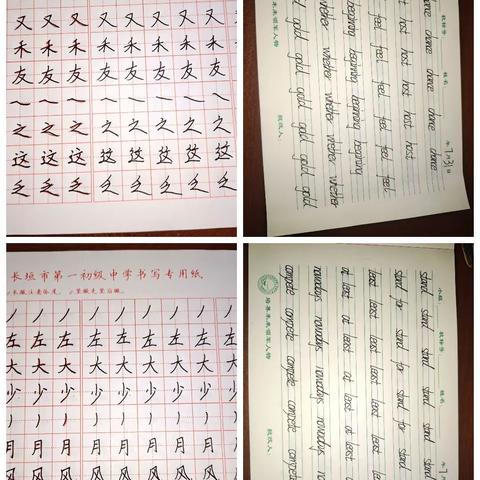 又 又 又 又 又 又 又 又
禾 禾 禾 禾 禾 禾 禾 禾
友 友 友 友 友 友 友 友
之 之 之 之 之 之 之 之
这 这 这 这 这 这 这 这
乏 乏 乏 乏 乏 乏 乏 乏
姓名
7月31日
chance chance chance chance
host host host host host
feel feel feel feel feel
beginning beginning beginning beginning
whether whether whether whether whether
gold gold gold gold gold gold
培养未来领军人物
长垣市第一初级中学书写专用纸
丿 丿 丿 丿 丿 丿 丿 丿
左 左 左 左 左 左 左 左
大 大 大 大 大 大 大 大
少 少 少 少 少 少 少 少
丿 丿 丿 丿 丿 丿 丿 丿
月 月 月 月 月 月 月 月
风 风 风 风 风 风 风 风
小组
姓名
stand stand stand stand stand
stand for stand for stand for stand
least least least least least least
at least at least at least at least
nowadays nowadays nowadays nowadays
compete compete compete compete compete
培养未来领军人物